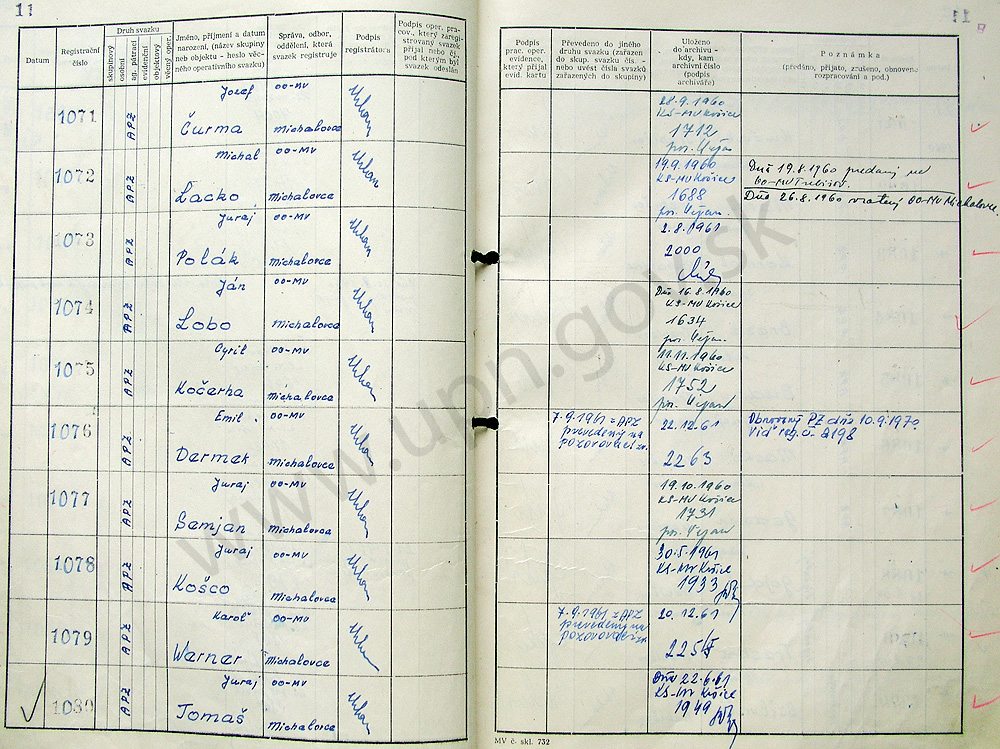 11
Datum
Registrační číslo
Druh svazku
skupinový
osobní
sg. pátrací
evidenční
objektový
věcný oper.
Jméno, příjmení a datum
narození, (název skupiny
neb objektu - heslo věc-
ného operativního svazku)
Správa, odbor,
oddělení, která
svazek registruje
Podpis
registrátora
Podpis oper. pra-
cov., který zaregi-
strovaný svazek
přijal nebo čj.
pod kterým byl
svazek odeslán
Podpis
prac. oper.
evidence,
který přijal
evid. kartu
Převedeno do jiného
druhu svazku (zařazen
do skup. svazku čís. -
nebo uvést čísla svazků
zařazených do skupiny)
Uloženo
do archivu -
kdy, kam
archivní číslo
(podpis
archiváře)
Poznámka
(předáno, přijato, zrušeno, obnoveno
rozpracování a pod.)
1071 APZ Jozef Čurma OO-MV Michalovce
28.9.1960
KS-MV Košice
1712
1072 APZ Michal Lacko OO-MV Michalovce
19.9.1960
KS-MV Košice
1688
Dňa 19.8.1960 predaný na
OO-MV Trebišov.
Dňa 26.8.1960 vrátený OO-MV Michalovce.
1073 APZ Juraj Polák OO-MV Michalovce
2.8.1961
2000
1074 APZ Ján Lobo OO-MV Michalovce
Dňa 16.8.1960
KS-MV Košice
1634
1075 APZ Cyril Kočerha OO-MV Michalovce
11.11.1960
KS-MV Košice
1752
1076 APZ Emil Dermek OO-MV Michalovce
7.9.1961 z APZ
prevedený na
pozorovací zv.
22.12.61
2263
Obnovený PZ dňa 10.9.1970
Viď reg. č. 2198
1077 APZ Juraj Semjan OO-MV Michalovce
19.10.1960
KS-MV Košice
1731
1078 APZ Juraj Koščo OO-MV Michalovce
30.5.1961
KS-MV Košice
1933
1079 APZ Karol Werner OO-MV Michalovce
7.9.1961 z APZ
prevedený na
pozorovací zv.
20.12.61
1080 APZ Juraj Tomaš OO-MV Michalovce
Dňa 22.6.61
KS-MV Košice
1949
MV č. skl. 732
www.upn.gov.sk